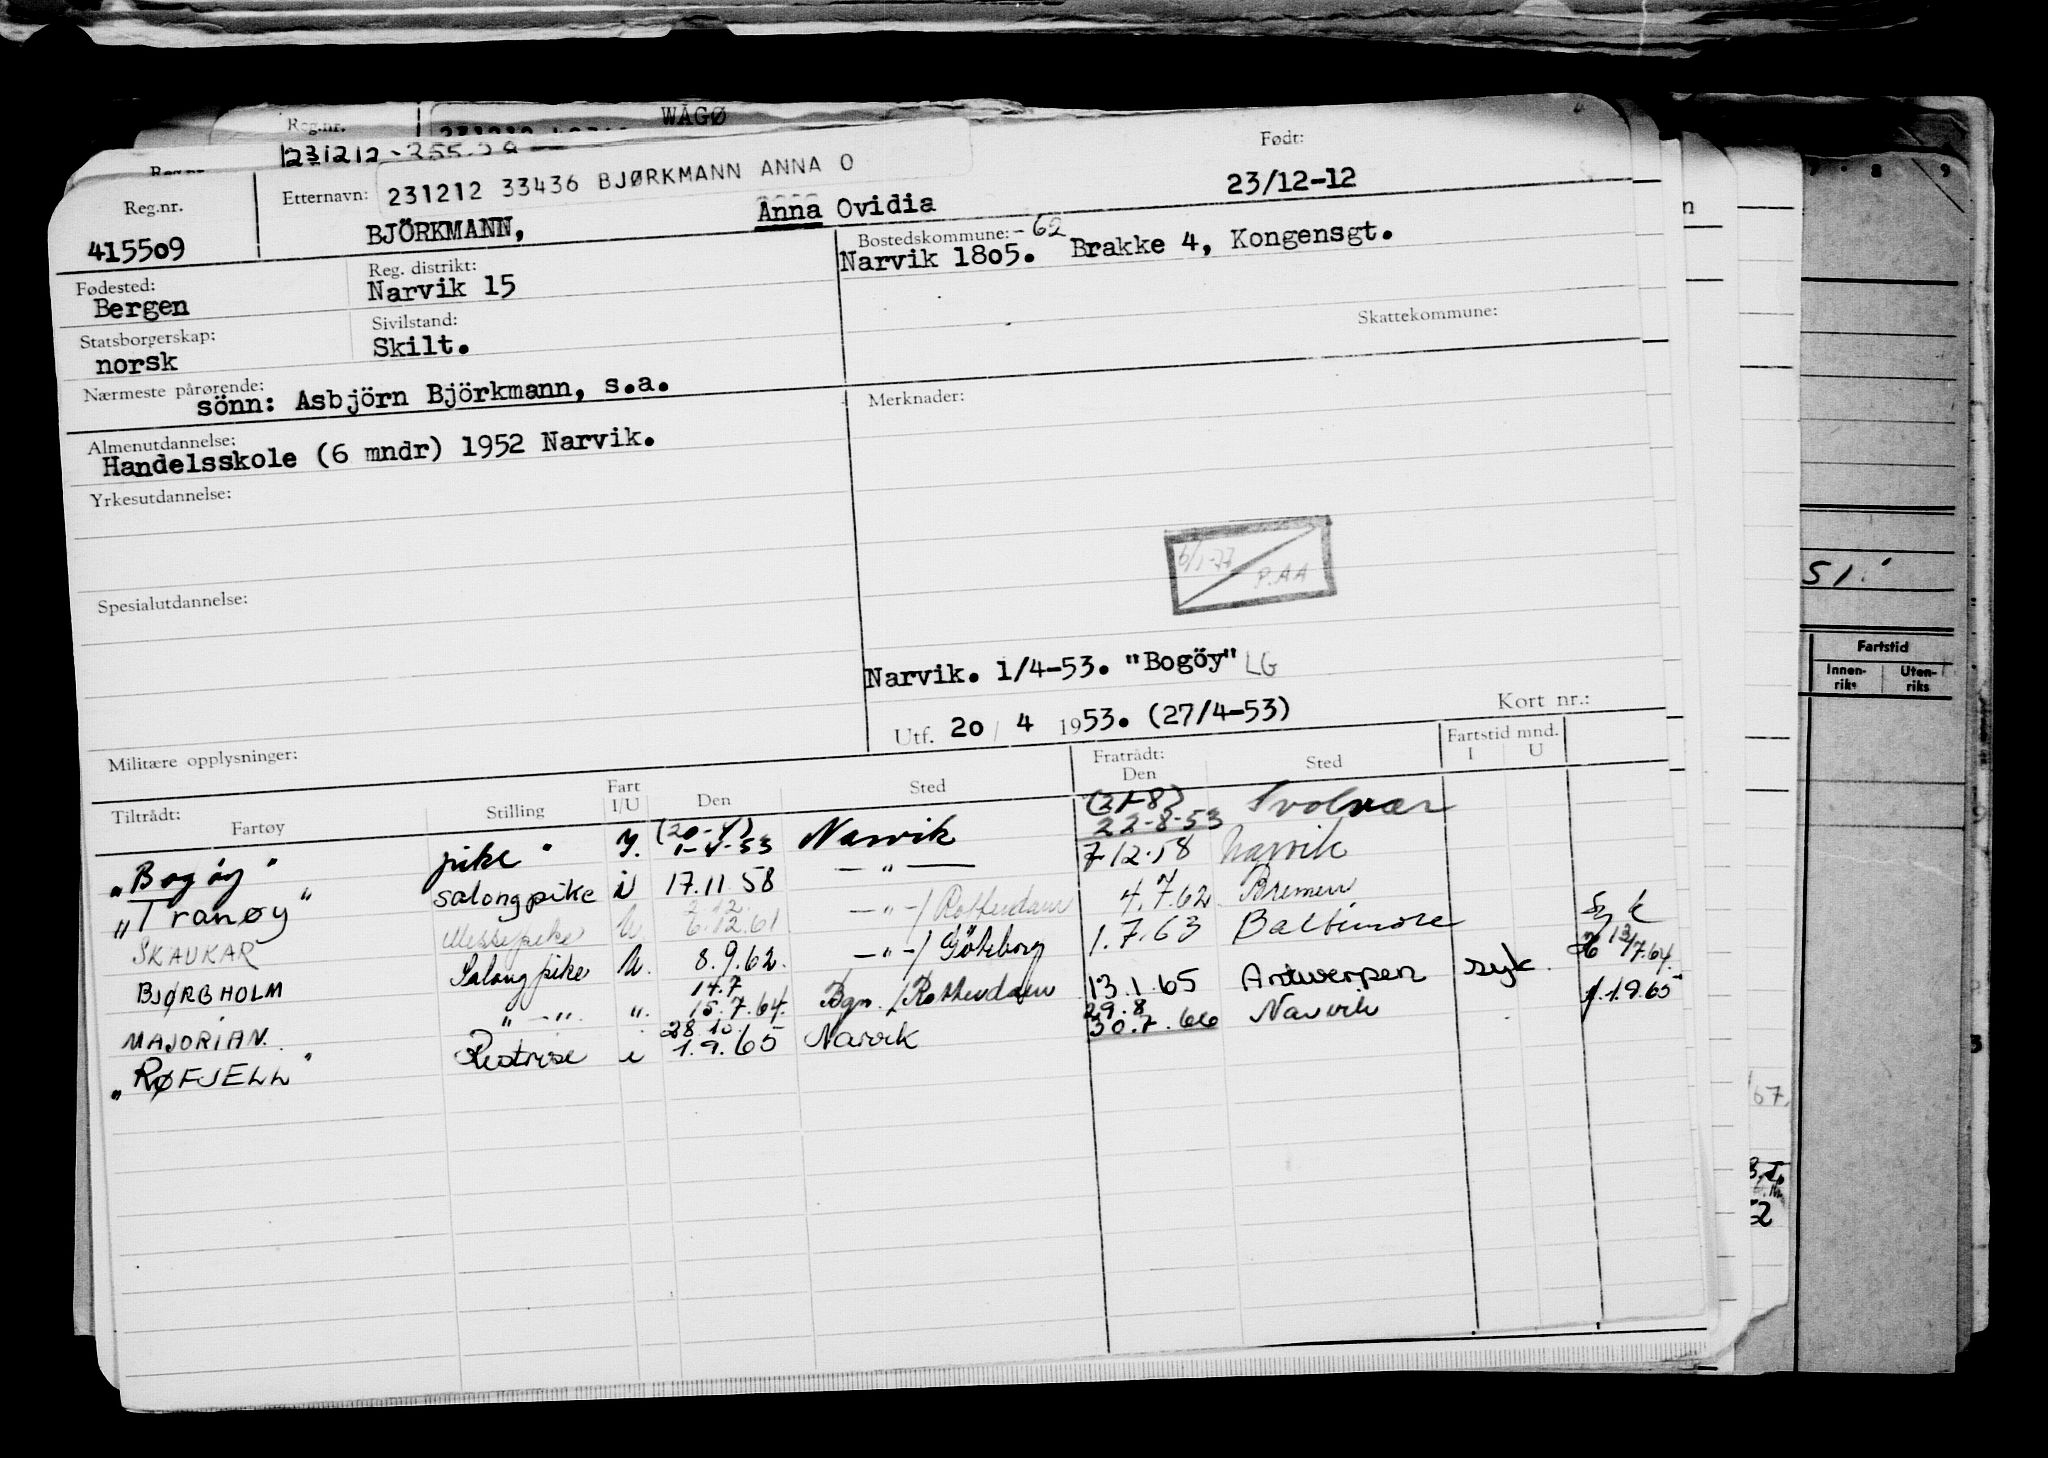 Reg.nr. WÅGØ
231212 - 355
Født:
231212 33436 BJØRKMANN ANNA O
Reg.nr. Etternavn: 23/12-12
415509 BJÖRKMANN, Anna Ovidia
Bostedskommune: -62
Narvik 1805. Brakke 4, Kongensgt.
Fødested: Reg. distrikt:
Bergen Narvik 15
Statsborgerskap: Sivilstand: Skattekommune:
norsk Skilt.
Nærmeste pårørende:
sönn: Asbjörn Björkmann, s.a.
Merknader:
Almenutdannelse:
Handelsskole (6 mndr) 1952 Narvik.
Yrkesutdannelse:
6/1-77
P.AA
Spesialutdannelse:
Narvik. 1/4-53. "Bogöy" LG
Utf. 20 / 4 1953. (27/4-53) Kort nr.:
Militære opplysninger:
Tiltrådt: Fratrådt: Fartstid mnd.
Fartøy Stilling Fart I/U Den Sted Den Sted I U
(20-4) (21-8)
"Bogöy" pike 1-4-53 Narvik 22-8-53 Svolvær
"Tranøy" salongpike i 17.11 58 - " - 7-12-58 Narvik
SKAUKAR Messepike U 6.12.61 - " -/ Rotterdam 4.7.62 Bremen
BJØRGHOLM Salongpike U. 8.9.62. - " -/ Göteborg 1.7.63 Baltimore syk 13/7.64.
14.7
MAJORIAN. " - " . ". 15.7.64. Bgn. / Rotterdam 13.1.65 Antwerpen syk. 1.9.65
28.10 29.8
"RØFJELL" Restrise i 1.9.65 Narvik 30.7.66 Narvik
Fartstid
Innen-riks Uten-riks